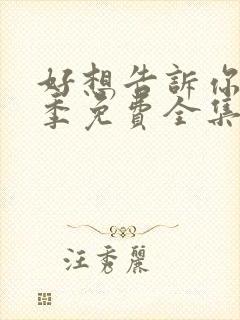 好想告訴你
季免費全集
汪秀麗